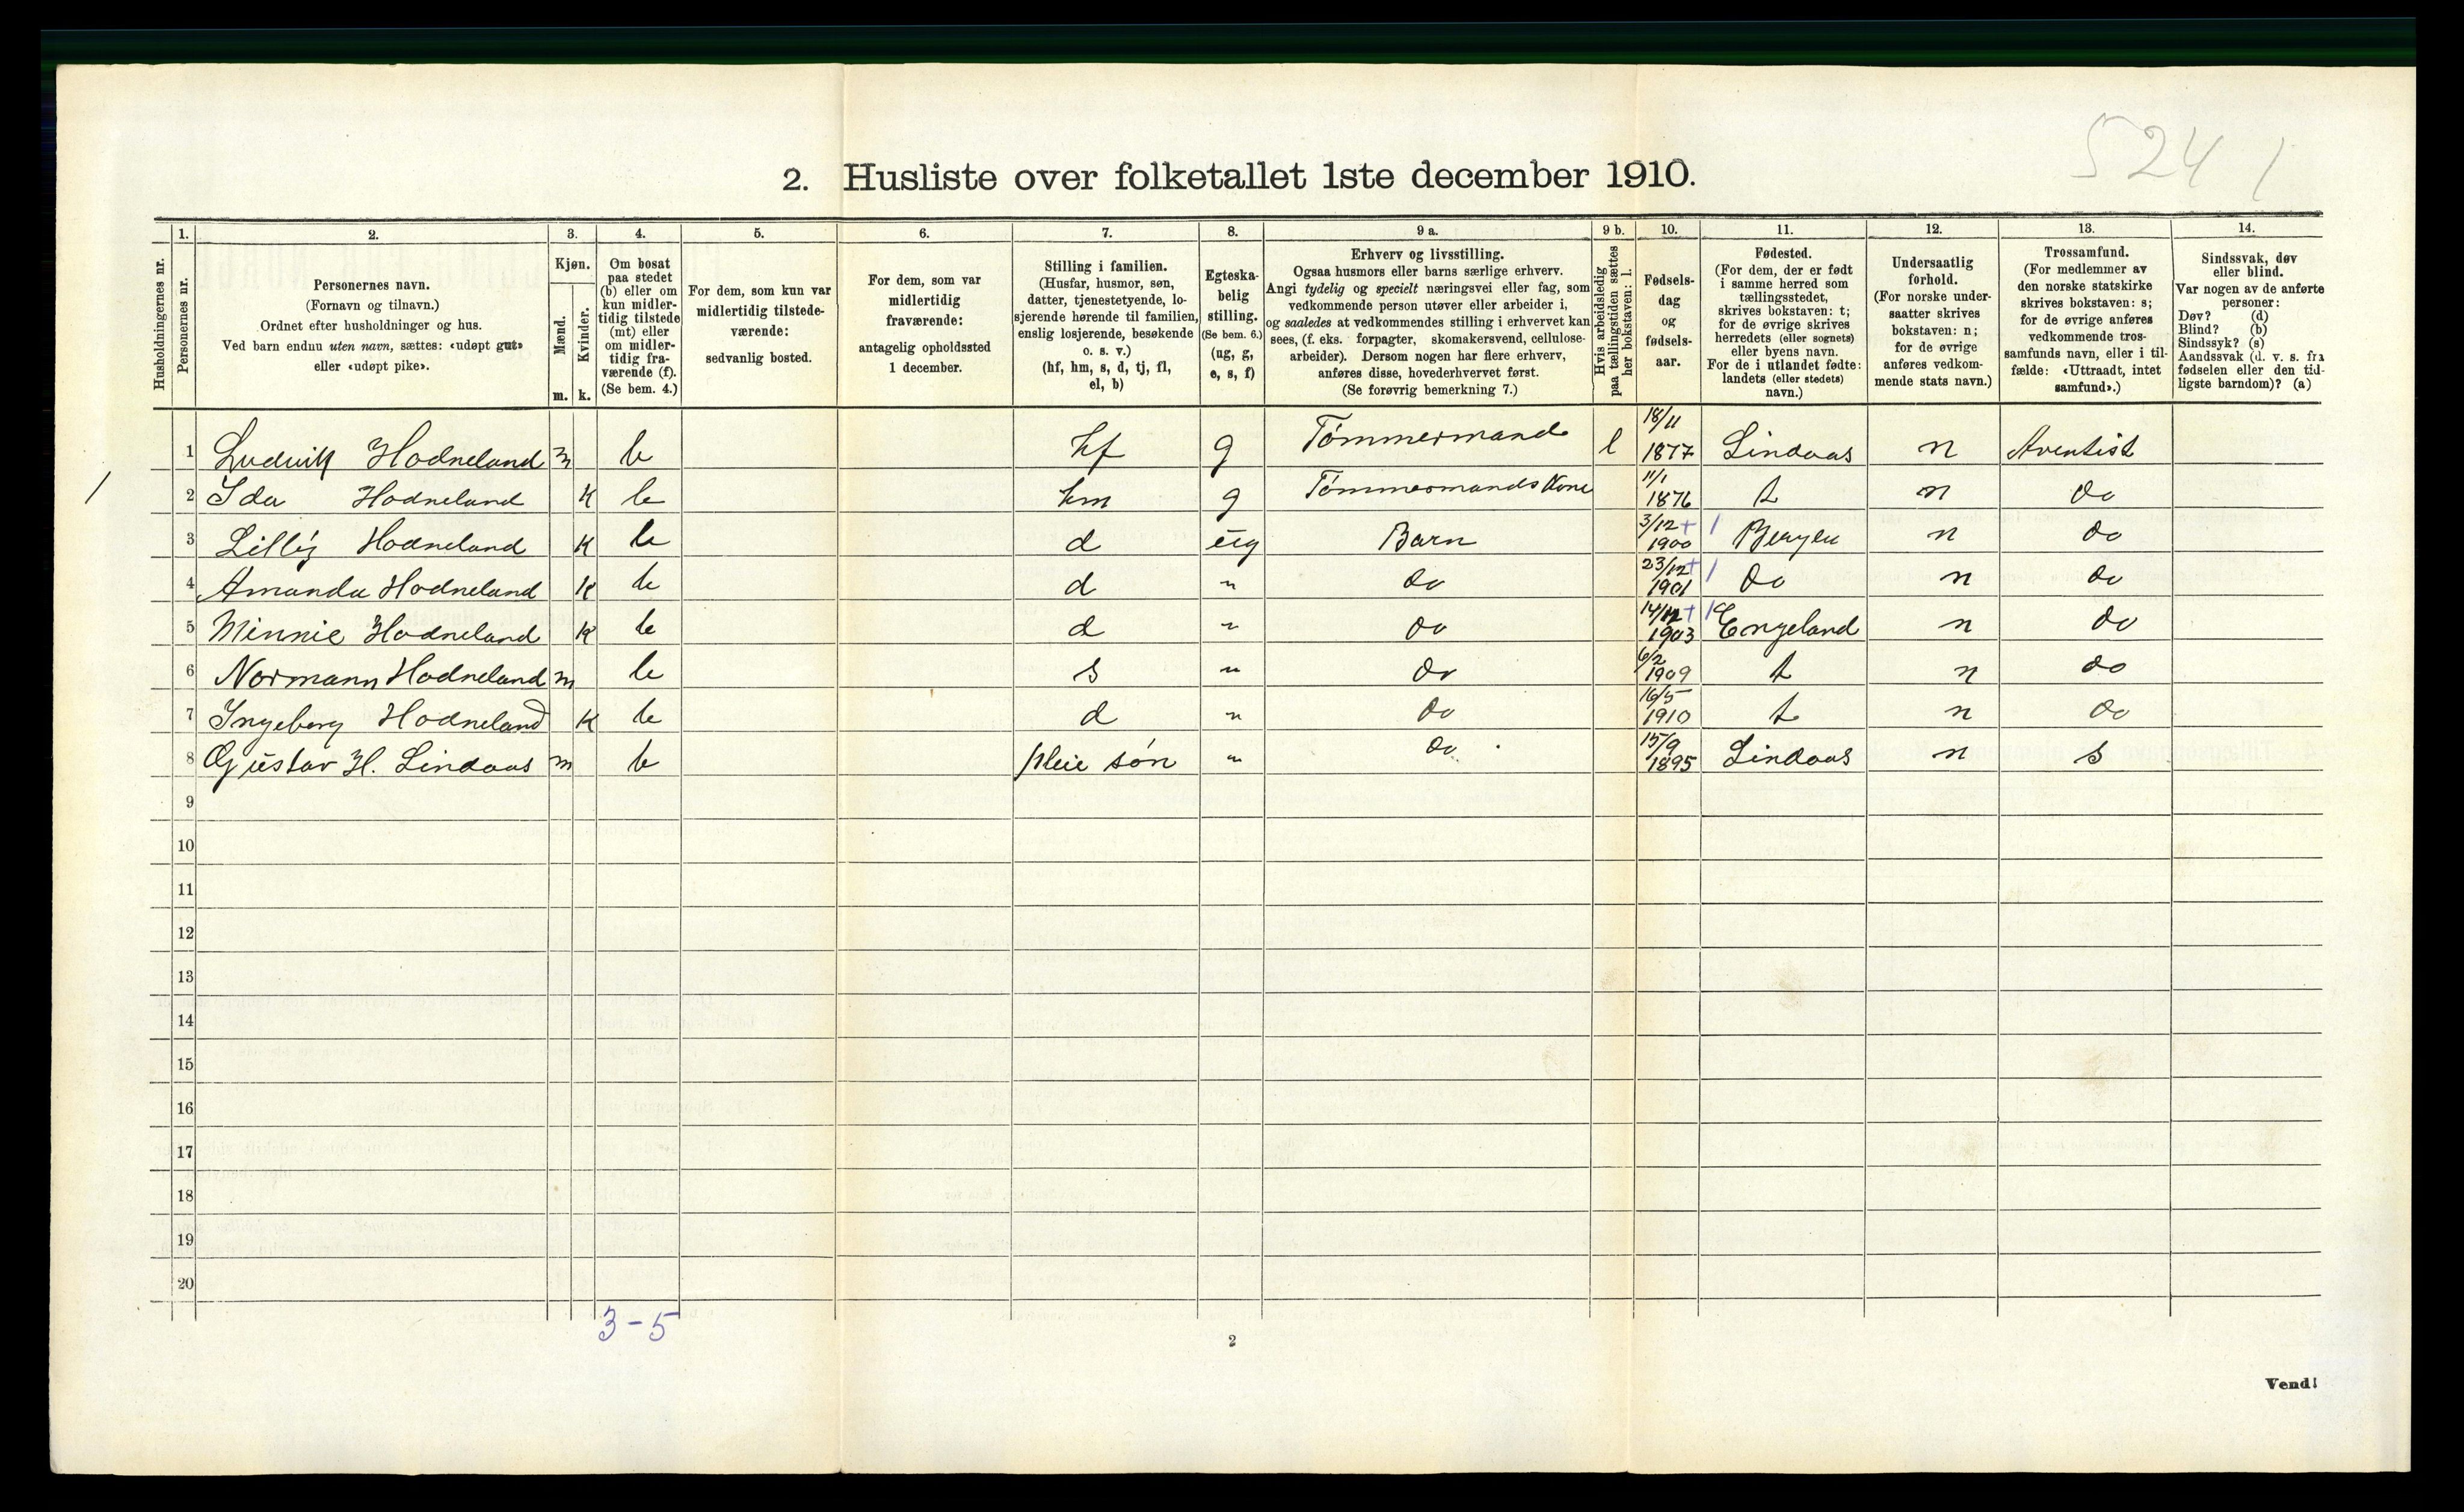 5241
2. Husliste over folketallet 1ste december 1910.
Husholdningernes nr.
1. Personernes nr.
2. Personernes navn.
(Fornavn og tilnavn.)
Ordnet efter husholdninger og hus.
Ved barn endnu uten navn, sættes: «udøpt gut»
eller «udøpt pike».
3. Kjøn.
Mænd. Kvinder.
m. k.
4. Om bosat
paa stedet
(b) eller om
kun midler-
tidig tilstede
(mt) eller
om midler-
tidig fra-
værende (f).
(Se bem. 4.)
5. For dem, som kun var
midlertidig tilstede-
værende:
sedvanlig bosted.
6. For dem, som var
midlertidig
fraværende:
antagelig opholdssted
1 december.
7. Stilling i familien.
(Husfar, husmor, søn,
datter, tjenestetyende, lo-
sjerende hørende til familien,
enslig losjerende, besøkende
o. s. v.)
(hf, hm, s, d, tj, fl,
el, b)
8. Egteska-
belig
stilling.
(Se bem. 6.)
(ug, g,
e, s, f)
9 a. Erhverv og livsstilling.
Ogsaa husmors eller barns særlige erhverv.
Angi tydelig og specielt næringsvei eller fag, som
vedkommende person utøver eller arbeider i,
og saaledes at vedkommendes stilling i erhvervet kan
sees, (f. eks. forpagter, skomakersvend, cellulose-
arbeider). Dersom nogen har flere erhverv,
anføres disse, hovederhvervet først.
(Se forøvrig bemerkning 7.)
9 b. Hvis arbeidsledig
paa tællingstiden sættes
her bokstaven: l.
10. Fødsels-
dag
og
fødsels-
aar.
11. Fødested.
(For dem, der er født
i samme herred som
tællingsstedet,
skrives bokstaven: t;
for de øvrige skrives
herredets (eller sognets)
eller byens navn.
For de i utlandet fødte:
landets (eller stedets)
navn.)
12. Undersaatlig
forhold.
(For norske under-
saatter skrives
bokstaven: n;
for de øvrige
anføres vedkom-
mende stats navn.)
13. Trossamfund.
(For medlemmer av
den norske statskirke
skrives bokstaven: s;
for de øvrige anføres
vedkommende tros-
samfunds navn, eller i til-
fælde: «Uttraadt, intet
samfund».)
14. Sindssvak, døv
eller blind.
Var nogen av de anførte
personer:
Døv? (d)
Blind? (b)
Sindssyk? (s)
Aandssvak (d. v. s. fra
fødselen eller den tid-
ligste barndom)? (a)
1 Ludvik Hodneland m b hf g Tømmermand l 18/11 1877 Lindaas n Aventist
1 2 Ida Hodneland k b hm g Tømmermands Kone 11/1 1876 t n do
3 Lilly Hodneland k b d ug Barn 3/12 1900 + 1 Bergen n do
4 Amanda Hodneland k b d " do 23/12 1901 + 1 do n do
5 Minnie Hodneland k b d " do 1903 + 1 Engeland n do
6 Normann Hodneland m b s " do 6/2 1909 t n do
7 Ingeborg Hodneland k b d " do 16/5 1910 t n do
8 Gustav H. Lindaas m b pleie søn " do 15/9 1895 Lindaas n s
9
10
11
12
13
14
15
16
17
18
19
20
3-5
2
Vend!